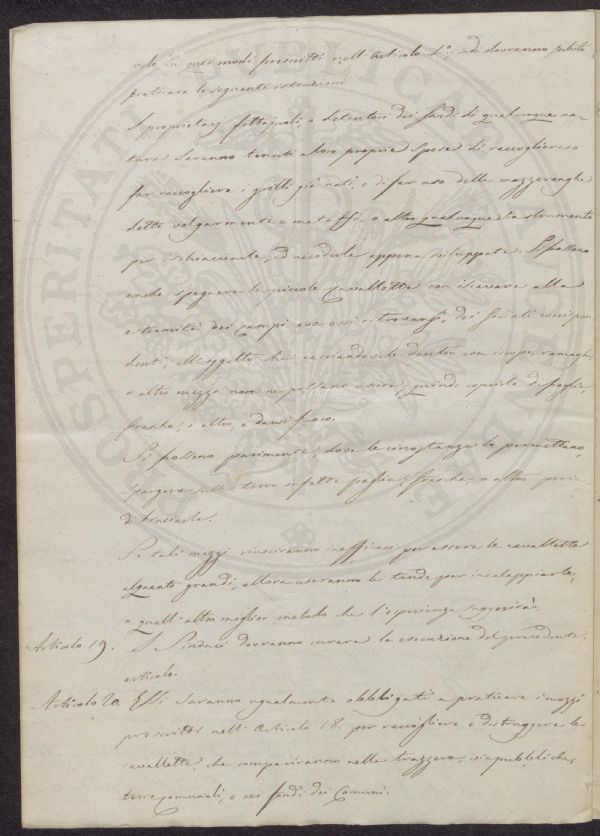 nei modi prescritti nell'Articolo 1°, indi dovranno subito
praticare le seguenti istruzioni
I proprietarj, fittajuoli, o detentori dei fondi di qualunque na-
tura saranno tenuti a loro proprie spese di raccogliere, o
far raccogliere i grilli già nati, e di far uso delle mazzeranghe
dette volgarmente matoffi, o altro qualunque sia strumento
per ischiacciarle, ed ucciderle appena sviluppate. Si possono
anche spegnere le piccole cavallette con iscavare alla
estremità dei campi ove esse ritrovansi, dei fossati corrispon-
denti, all'oggetto che cacciandovele dentro con iscope, ramaglie,
o altro mezzo non ne possano uscire, quindi coprirle di paglia,
frasche, o altro, e darvi fuoco.
Si possono parimente, dove le circostanze lo permettano,
spargere sulle terre infette paglie, frasche, o altro per in-
di bruciarle.
Se tali mezzi riusciranno inefficaci per essere le cavallette
alquanto grandi, allora useranno le tende per incalappiarle,
o quell'altro miglior metodo che l'esperienza suggerirà.
Articolo 19. I Sindaci dovranno curare la esecuzione del precedente
articolo.
Articolo 20. Essi saranno ugualmente obbligati a praticare i mezzi
prescritti nell'Articolo 18. per raccogliere e distruggere le
cavallette, che compariranno nelle trazzere, vie pubbliche,
terre comunali, e nei fondi dei Comuni.
PROSPERITATI PUBLICAE AUGENDAE